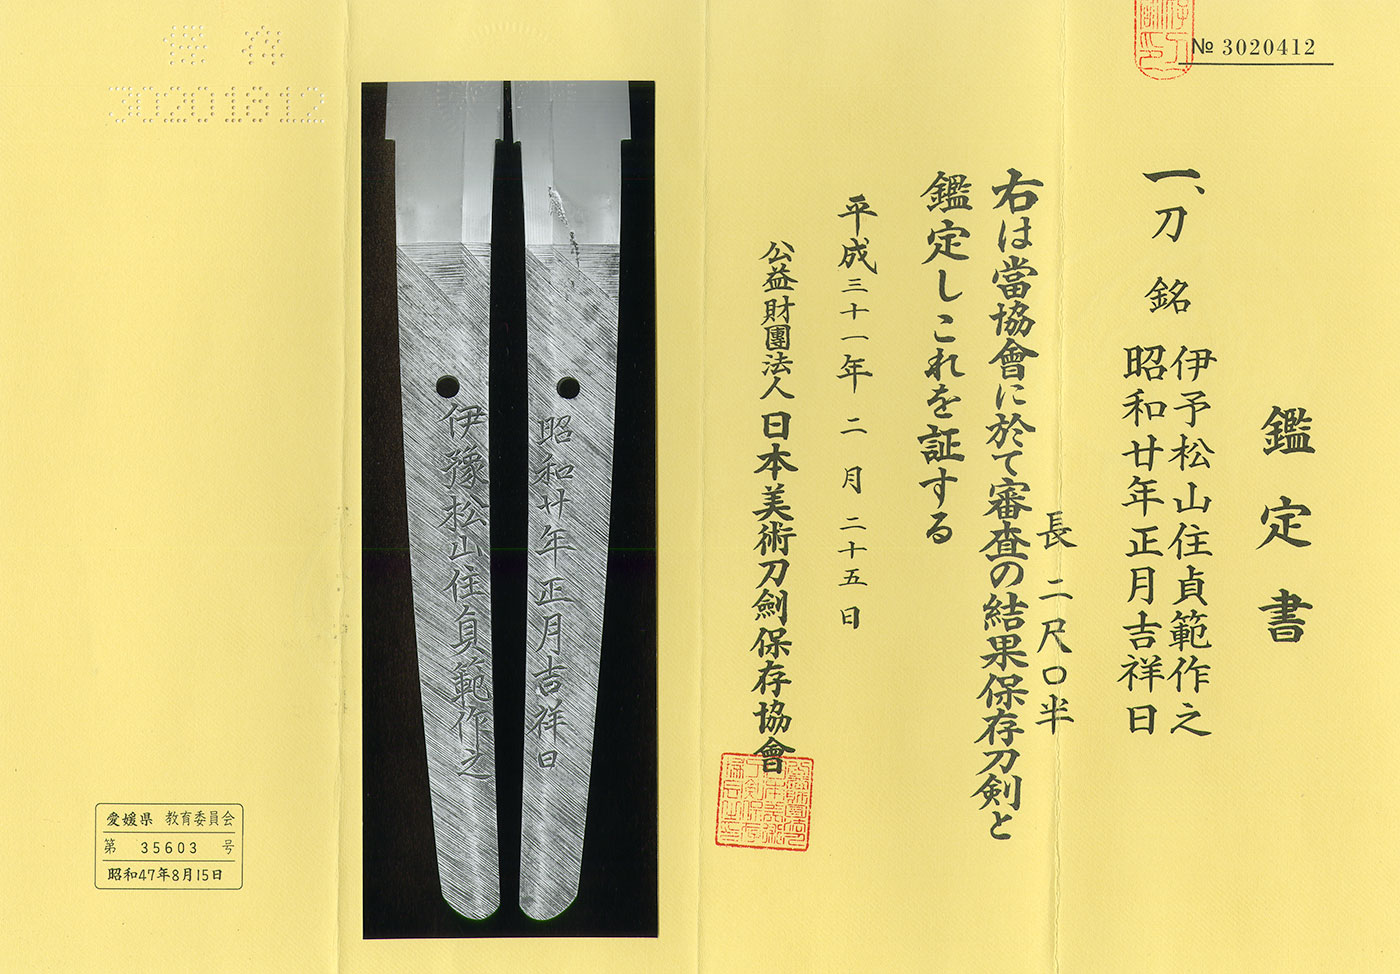 № 3020412
鑑定書
一、刀 銘 伊予松山住貞範作之
昭和廿年正月吉祥日
長 二尺〇半
右は當協會に於て審査の結果保存刀剣と
鑑定しこれを証する
平成三十一年 二月 二十五日
公益財團法人 日本美術刀劍保存協會
昭和廿年正月吉祥日
伊豫松山住貞範作之
保存
30201812
愛媛県 教育委員会
第 35603 号
昭和47年8月15日